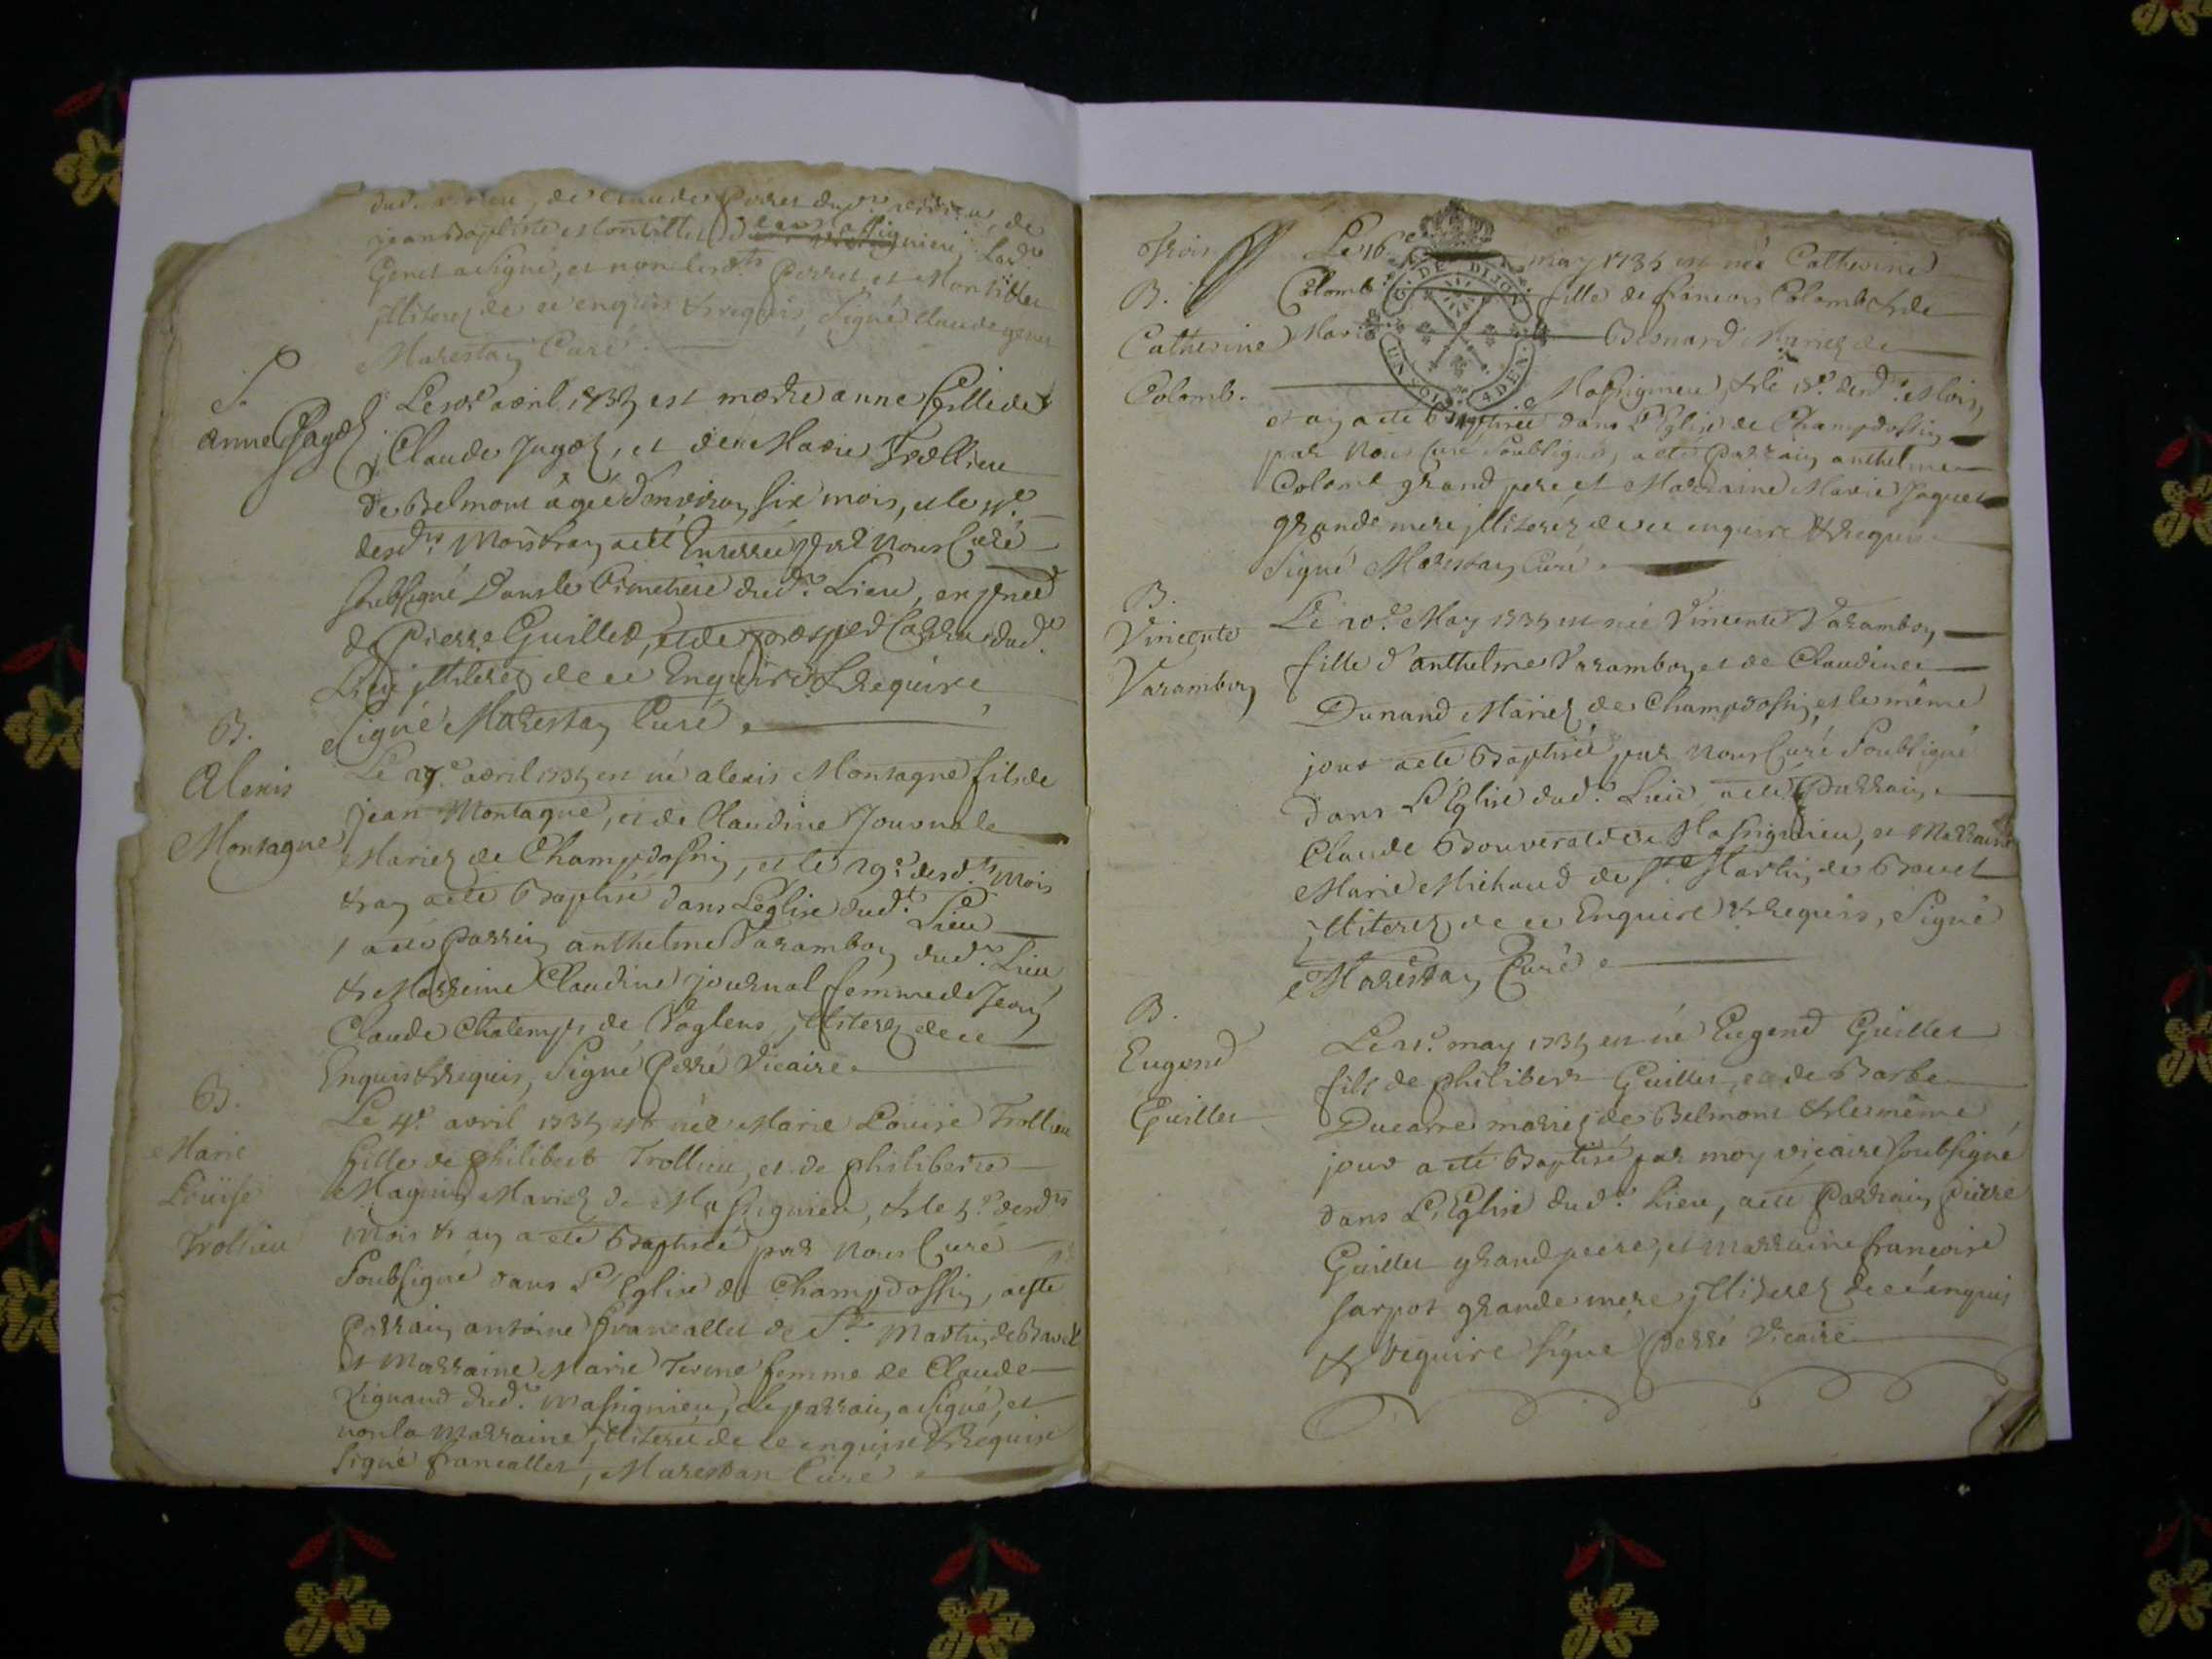 de Claude Perret dud.
jean Baptiste Montillet
Genet a signé, et non lesd.ts Perret et Montillet
jlliterez de ce enquis & requis, Signé Claude genet
Marestan Curé.
S.
anne
Le 10e avril 1735 est morte anne fille de
Claude Jugoz, et de Marie Trollieu
de Belmont âgée d'environ six mois, et le 11e
desd.ts Mois & an a été Enterrée par Nous Curé
soubsigné Dans le Cimetiere dud.t Lieu, en pnce
de Pierre Guillet, et de prosper dud.t
Lieu jlliterez de ce Enquis & Require
Signé Marestan Curé.
B.
Alexis
Montagne
Le avril 1735 est né alexis Montagne fils de
jean Montagne, et de Claudine Journale
Mariez de Champdossin, et le 29e desd.ts Mois
& an a été Baptisé dans L'église dud.t Lieu
a été Parrein anthelme Varambon dud.t Lieu,
& Marreine Claudine Journal femme de Jean
Claude Chatemps de Voglens, jlliterez de ce
Enquis & requis, Signé Perré Vicaire.
B.
Marie
Louïse
Trollieu
Le 4e avril 1735 est née Marie Louise Trollieu
fille de philibert Trollieu, et de philiberte
Magnin Mariez de Massignieu, & le 5e desd.ts
Mois & an a été Baptisée par Nous Curé
Soubsigné dans L'Eglise de Champdossin, a esté
Parrain antoine francallet de St. Martin de Bavel
et Marraine Marie femme de Claude
Vignand dud.t Massignieu, Le parrain a signé, et
non la Marraine jlliterée de ce enquise & Requise
Signé francallet, Marestan Curé.
Trois
B.
Catherine
Colomb.
Le 16e may 1735 est née Catherine
Colomb fille de francois Colomb & de
Bernard Mariez de
G. DE DIJON
UN SOL 4 DEN.
Massignieu, & le desd.ts Mois,
et an a été Baptisée dans L'Eglise de Champdossin
par Nous Curé Soubsigné, a été Parrain anthelme
Colomb grand pere et Marraine Marie Jaquet
grande mere jlliterez de ce enquire & Require
Signé Marestan Curé.
B.
Vincente
Varambon
Le 20e May 1735 est née Vincente Varambon,
fille d'anthelme Varambon et de Claudine
Dunand Mariez de Champdossin, et le même
jour a été Baptisée par Nous Curé Soubsigné
dans L'Eglise dud.t Lieu, a été Parrain
Claude Bouverat de Massignieu, et Marraine
Marie Michaud de St. Martin de Bavel
jlliterez de ce Enquire & Requis, Signé
Marestan Curé.
B.
Eugend
Guillet
Le 21e may 1735 est né Eugend Guillet
fils de philibert Guillet, et de Barbe
Ducarre mariez de Belmont & le même
jour a été Baptisé par moy vicaire soubsigné
dans L'Eglise dud.t Lieu, a été Parrain pierre
Guillet grand peere, et marraine francoise
sarpot grande mere jlliterez de ce enquis
& require signé Perré Vicaire